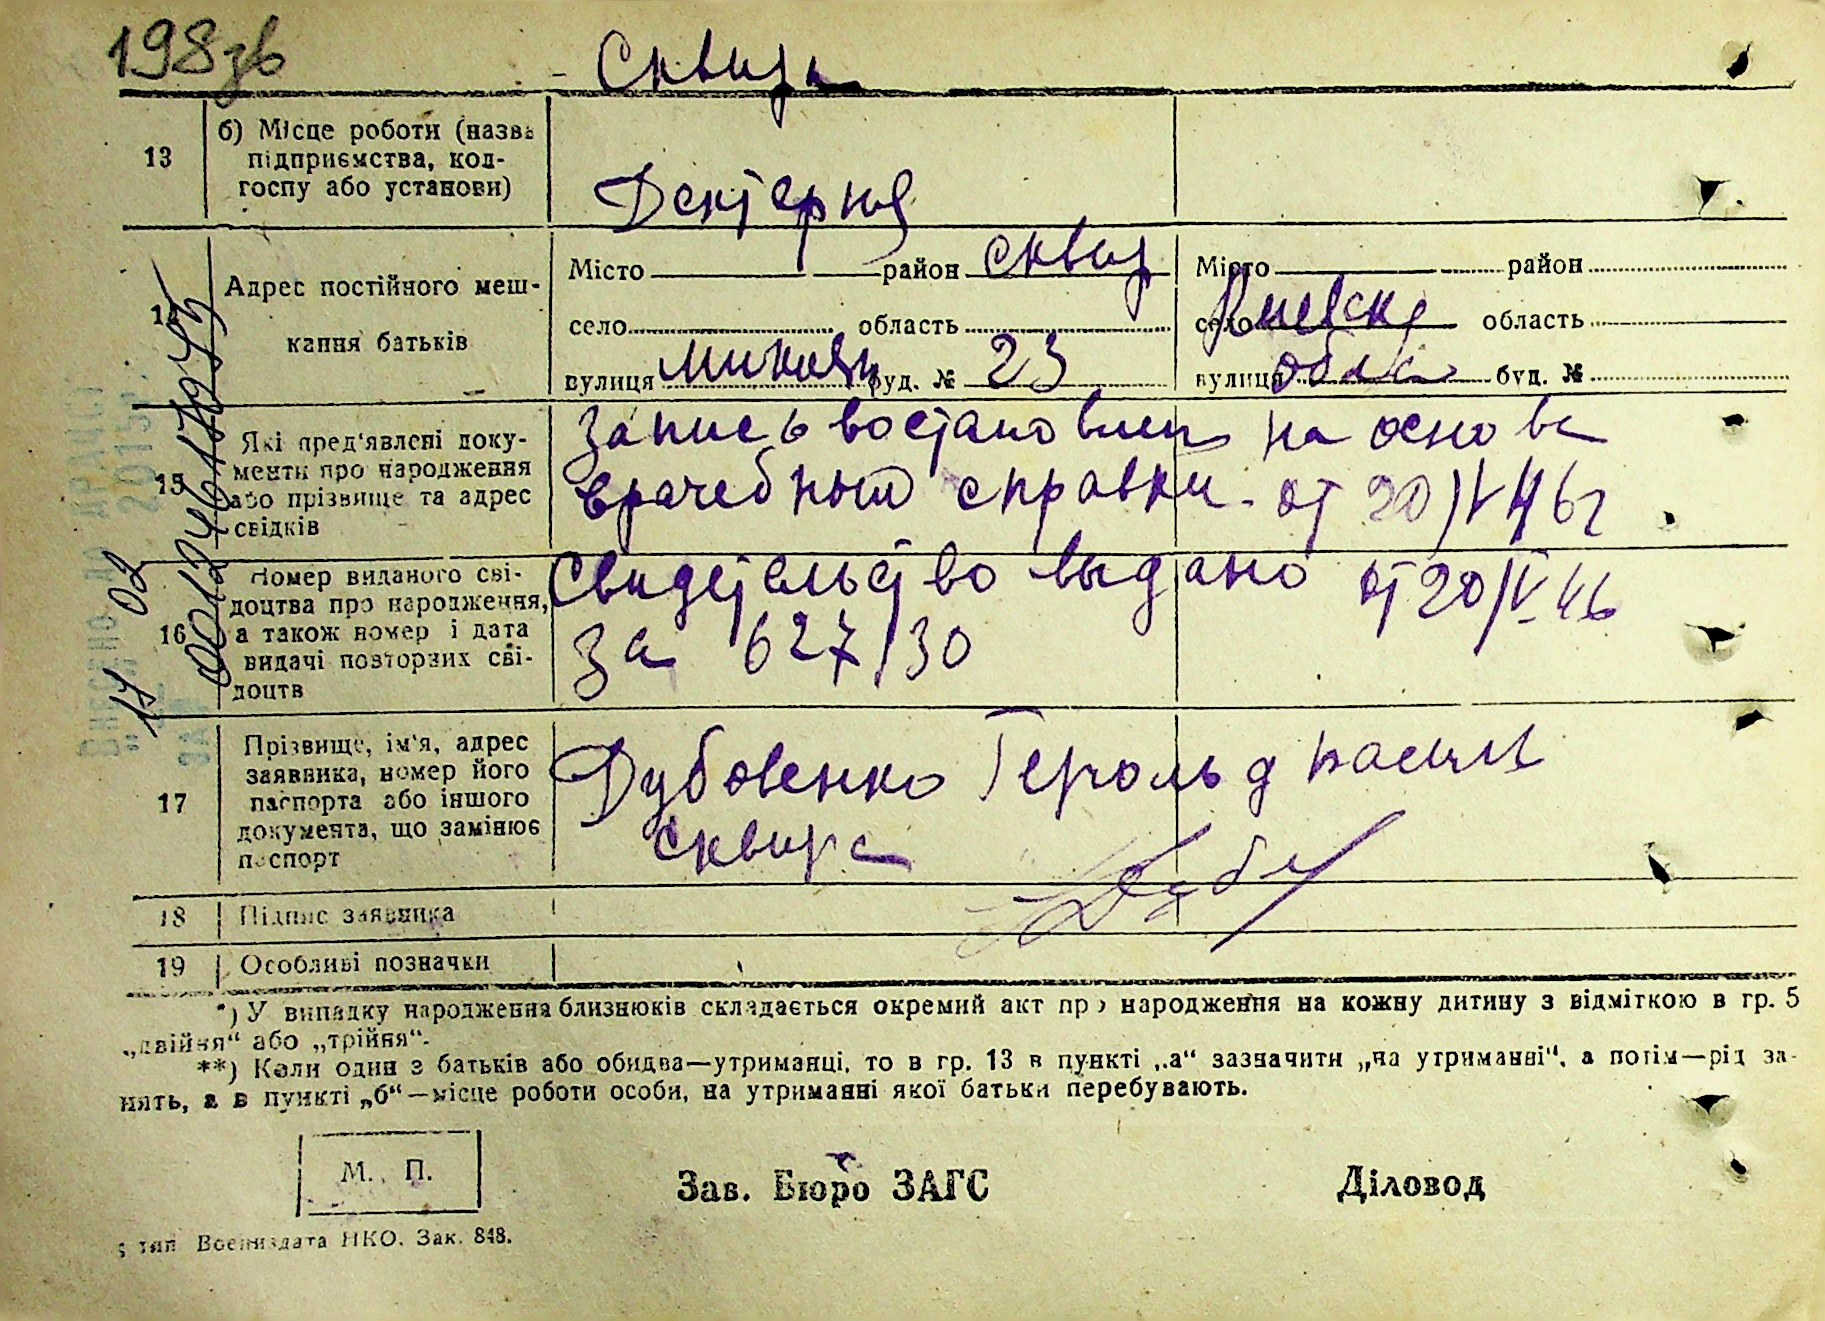 198зв
Сквира
13
б) Місце роботи (назва
підприємства, кол-
госпу або установи)
14
Адрес постійного меш-
кання батьків
Місто район Сквир
село область
вулиця буд. № 23
Місто район
село Киевск область
вулиця обла буд. №
15
Які пред'явлені доку-
менти про народження
або прізвище та адрес
свідків
Запись востановлен на основе
врачебной справки от 20/V 46г
16
Номер виданого сві-
доцтва про народження,
а також номер і дата
видачі повторних сві-
доцтв
Свидетельство выдано от 20/V-46
За 627/30
17
Прізвище, ім'я, адрес
заявника, номер його
паспорта або іншого
документа, що замінює
паспорт
Дубовенко Герольд
Сквира
18 Підпис заявника
19 Особливі позначки
*) У випадку народження близнюків складається окремий акт про народження на кожну дитину з відміткою в гр. 5
„двійня“ або „трійня“.
**) Коли один з батьків або обидва—утриманці, то в гр. 13 в пункті „а“ зазначити „на утриманні“, а потім—рід за-
нять, а в пункті „б“—місце роботи особи, на утриманні якої батьки перебувають.
М. П.
Зав. Бюро ЗАГС
Діловод
тип. Воениздата НКО. Зак. 848.